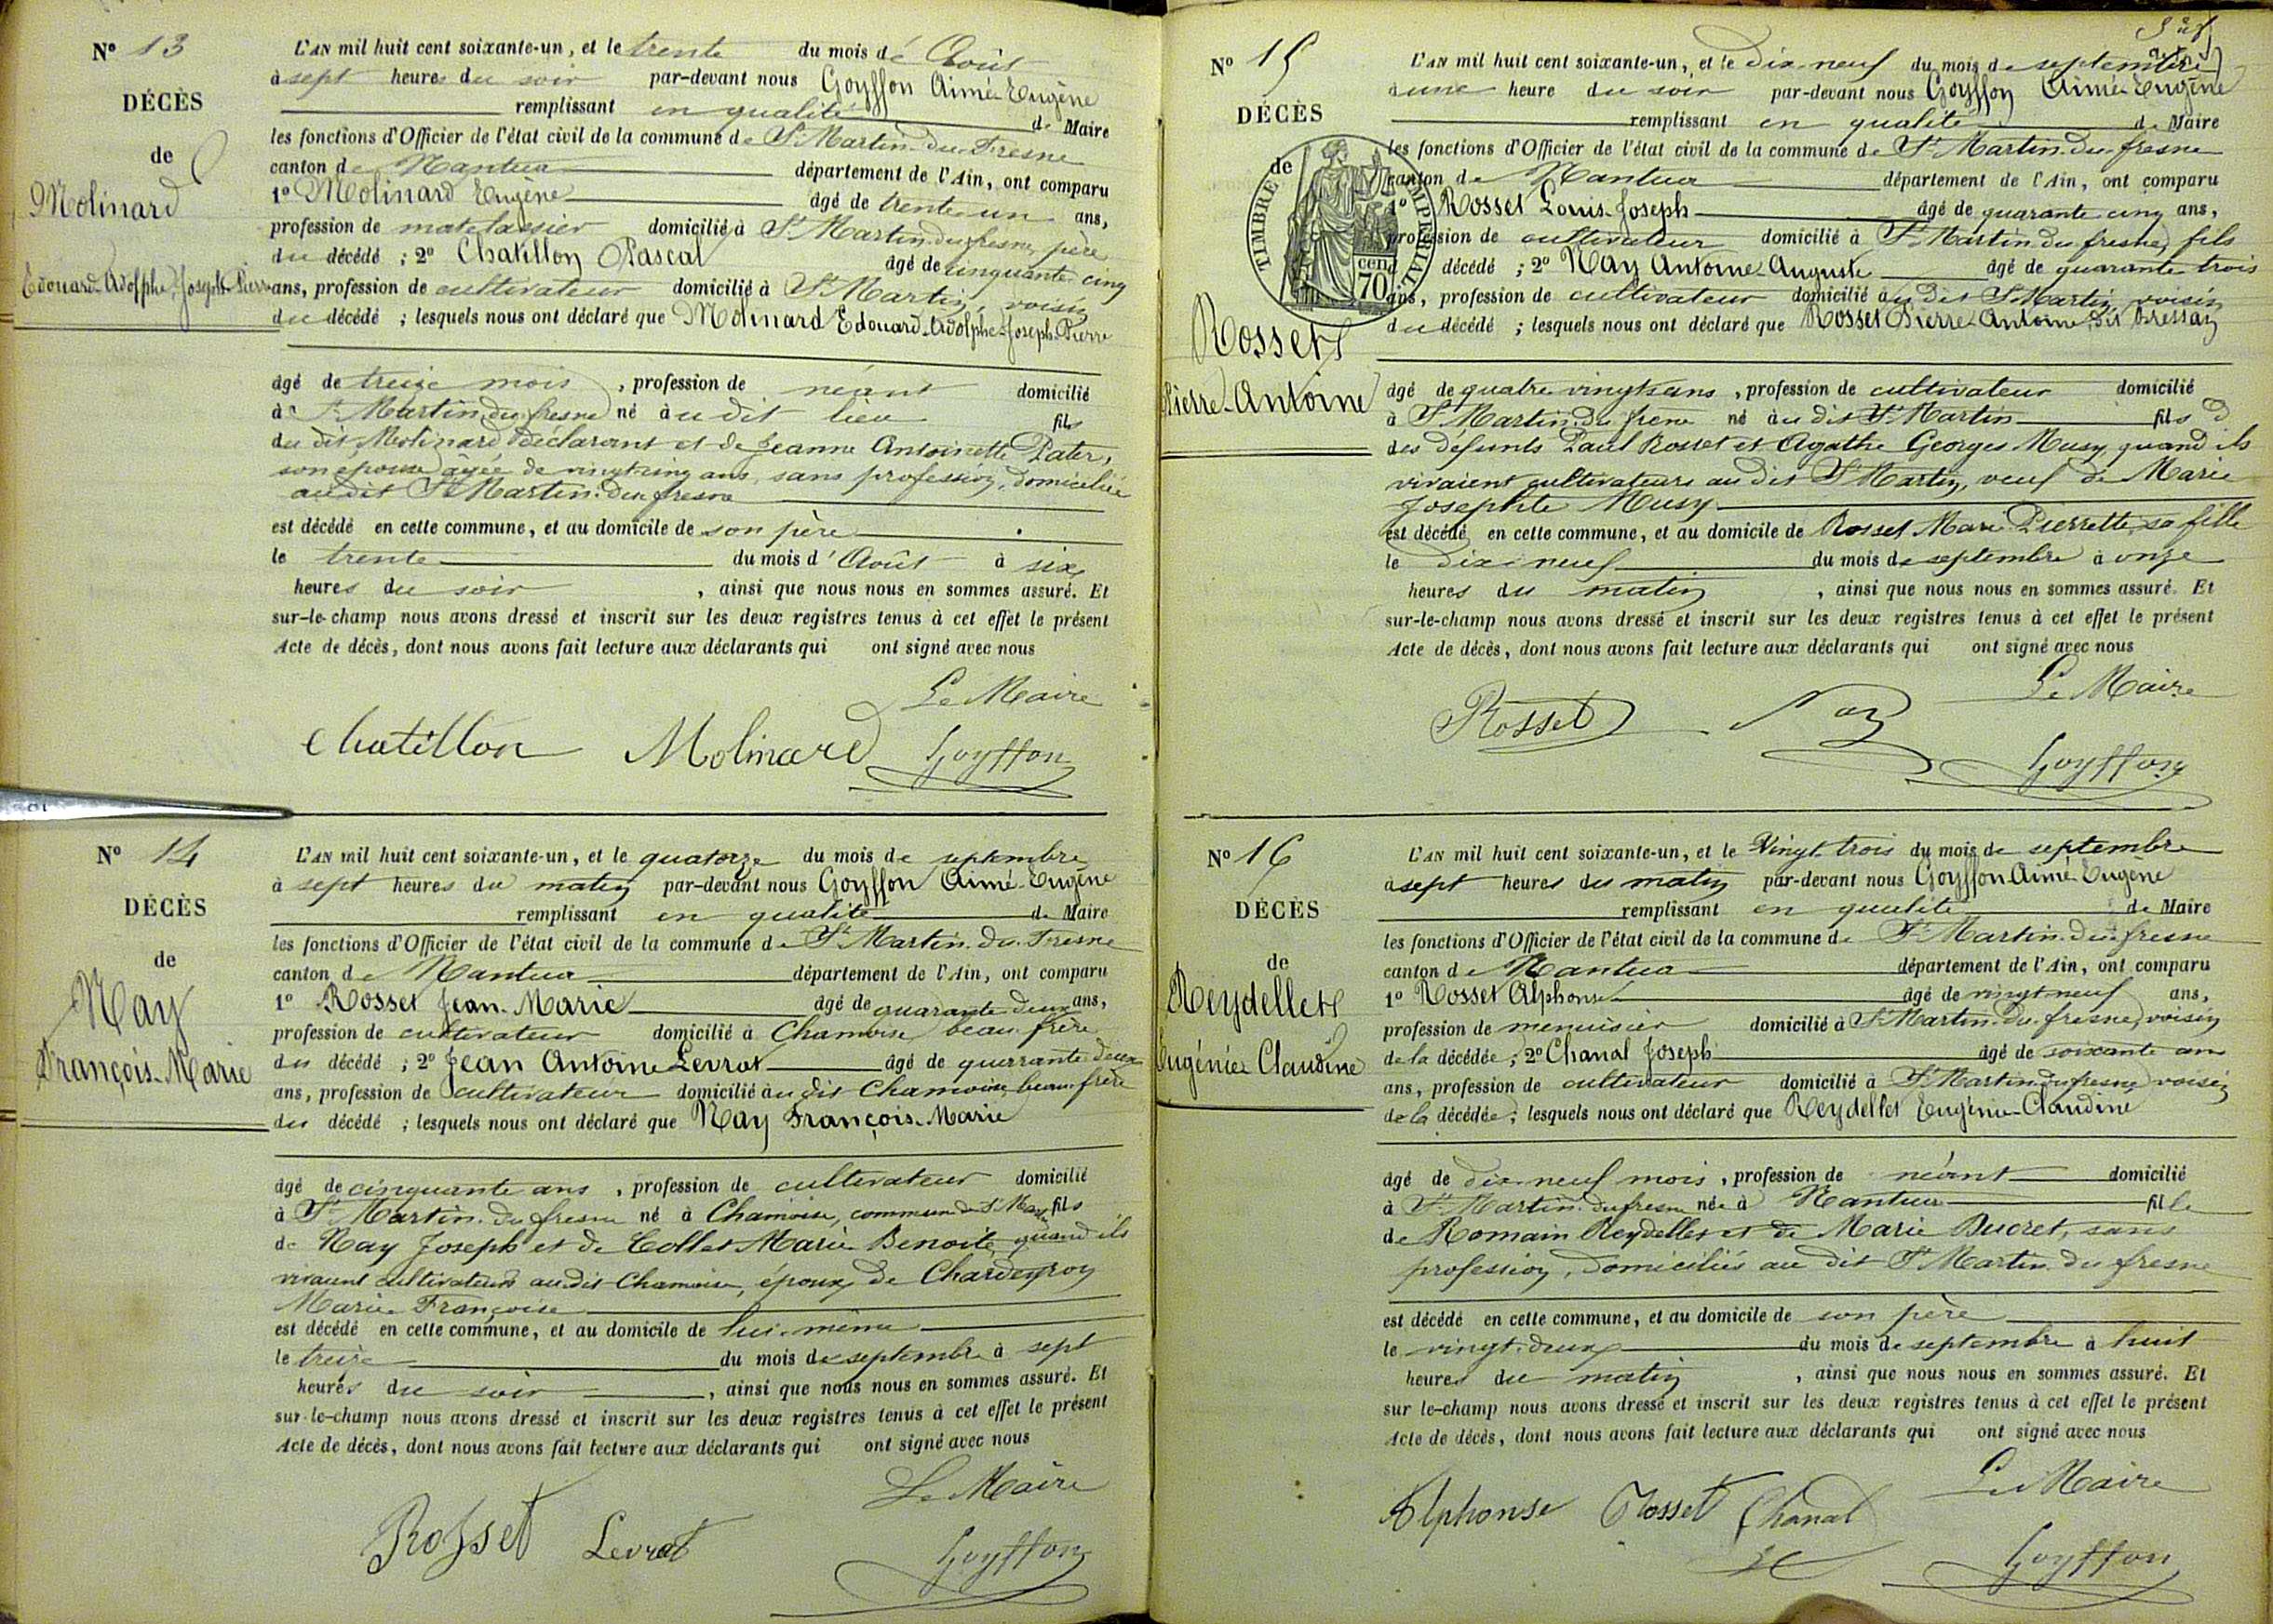 Nº 13
DÉCÈS
de
Molinard
Edouard-Adolphe-Joseph-Pierre
L'AN mil huit cent soixante-un, et le trente du mois de Août
à sept heures du soir par-devant nous Goyffon Aimé Eugène
remplissant en qualité de Maire
les fonctions d'Officier de l'état civil de la commune de St Martin-du-Fresne
canton de Nantua département de l'Ain, ont comparu
1º Molinard Eugène âgé de trente-un ans,
profession de matelassier domicilié à St Martin du fresne, père
du décédé ; 2º Chatillon Pascal âgé de cinquante cinq
ans, profession de cultivateur domicilié à St Martin, voisin
du décédé ; lesquels nous ont déclaré que Molinard Edouard-Adolphe-Joseph-Pierre
âgé de treize mois , profession de néant domicilié
à St Martin du fresne né àu dit lieu fils
du dit Molinard déclarant et de Jeanne Antoinette Pater,
son épouse âgée de vingt-cinq ans, sans profession, domiciliée
au dit St Martin-du-fresne
est décédé en cette commune, et au domicile de son père
le trente du mois d'Août à six
heures du soir , ainsi que nous nous en sommes assuré. Et
sur-le-champ nous avons dressé et inscrit sur les deux registres tenus à cet effet le présent
Acte de décès, dont nous avons fait lecture aux déclarants qui ont signé avec nous
Le Maire
Chatillon Molinard Goyffon
Nº 14
DÉCÈS
de
Nay
François-Marie
L'AN mil huit cent soixante-un, et le quatorze du mois de septembre
à sept heures du matin par-devant nous Goyffon Aimé-Eugène
remplissant en qualité de Maire
les fonctions d'Officier de l'état civil de la commune de St Martin-du-Fresne
canton de Nantua département de l'Ain, ont comparu
1º Rosset Jean-Marie âgé de quarante deux ans,
profession de cultivateur domicilié à Chamoise beau-frère
du décédé ; 2º Jean Antoine Levrat âgé de quarante deux
ans, profession de cultivateur domicilié àu dit Chamoise, beau-frère
du décédé ; lesquels nous ont déclaré que Nay François-Marie
âgé de cinquante ans , profession de cultivateur domicilié
à St Martin-du-fresne né à Chamoise, commune de St Martin fils
de Nay Joseph et de Collet Marie Benoite, quand ils
vivaient cultivateurs au dit Chamoise, époux de Chardeyron
Marie Françoise
est décédé en cette commune, et au domicile de lui-même
le treize du mois de septembre à sept
heures du soir , ainsi que nous nous en sommes assuré. Et
sur-le-champ nous avons dressé et inscrit sur les deux registres tenus à cet effet le présent
Acte de décès, dont nous avons fait lecture aux déclarants qui ont signé avec nous
Le Maire
Rosset Levrat Goyffon
Nº 15
DÉCÈS
de
TIMBRE IMPÉRIAL
70 cent
Rosset
Pierre-Antoine
L'AN mil huit cent soixante-un, et le dix-neuf du mois de septembre
à une heure du soir par-devant nous Goyffon Aimé-Eugène
remplissant en qualité de Maire
les fonctions d'Officier de l'état civil de la commune de St Martin-du-fresne
canton de Nantua département de l'Ain, ont comparu
1º Rosset Louis-Joseph âgé de quarante cinq ans,
profession de cultivateur domicilié à St Martin du fresne, fils
décédé ; 2º Nay Antoine-Auguste âgé de quarante trois
ans, profession de cultivateur domicilié àu dit St Martin, voisin
du décédé ; lesquels nous ont déclaré que Rosset Pierre-Antoine, dit Bressan
âgé de quatre vingts ans , profession de cultivateur domicilié
à St Martin-du-frene né àu dit St Martin fils
des défunts Paul Rosset et Agathe Georges Musy quand ils
vivaient cultivateurs au dit St Martin, veuf de Marie
Josephte Musy
est décédé en cette commune, et au domicile de Rosset Marie Pierrette, sa fille
le dix-neuf du mois de septembre à onze
heures du matin , ainsi que nous nous en sommes assuré. Et
sur-le-champ nous avons dressé et inscrit sur les deux registres tenus à cet effet le présent
Acte de décès, dont nous avons fait lecture aux déclarants qui ont signé avec nous
Le Maire
Rosset Nay
Goyffon
Nº 16
DÉCÈS
de
Reydellet
Eugénie Claudine
L'AN mil huit cent soixante-un, et le Vingt-trois du mois de septembre
à sept heures du matin par-devant nous Goyffon Aimé-Eugène
remplissant en qualité de Maire
les fonctions d'Officier de l'état civil de la commune de St Martin-du-fresne
canton de Nantua département de l'Ain, ont comparu
1º Rosset Alphonse âgé de vingt-neuf ans,
profession de menuisier domicilié à St Martin-du-fresne, voisin
de la décédée ; 2º Chanal Joseph âgé de soixante ans
ans, profession de cultivateur domicilié à St Martin du fresne, voisin
de la décédée ; lesquels nous ont déclaré que Reydellet Eugénie-Claudine
âgé de dix-neuf mois , profession de néant domicilié
à St Martin-du-fresne née à Nantua fille
de Romain Reydellet et de Marie Ducret, sans
profession, domiciliés au dit St Martin-du-fresne
est décédé en cette commune, et au domicile de son père
le vingt-deux du mois de septembre à huit
heures du matin , ainsi que nous nous en sommes assuré. Et
sur le-champ nous avons dressé et inscrit sur les deux registres tenus à cet effet le présent
Acte de décès, dont nous avons fait lecture aux déclarants qui ont signé avec nous
Le Maire
Alphonse Rosset Chanal
Goyffon